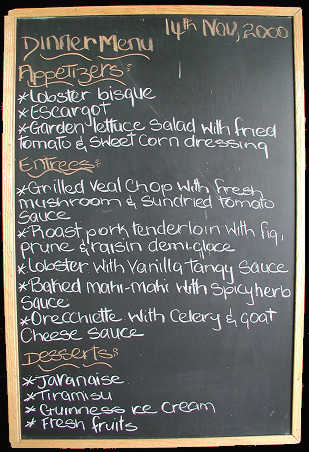 14th Nov, 2000
Dinner Menu
Appetizers:
*Lobster bisque
*Escargot
*Garden lettuce Salad with fried
tomato & sweet corn dressing
Entrees:
*Grilled Veal Chop with fresh
mushroom & Sundried tomato
Sauce
*Roast pork tenderloin with fig,
prune & raisin demi-glace
*Lobster with Vanilla Tangy Sauce
*Baked mahi-mahi with Spicy herb
Sauce
*Orecchiette with Celery & goat
Cheese Sauce
Desserts:
*Javanaise
*Tiramisu
*Guinness Ice Cream
*Fresh fruits